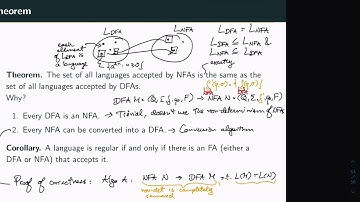 heorem
L_DFA
L_NFA
L_DFA = L_NFA
L_DFA ⊆ L_NFA &
L_NFA ⊆ L_DFA
each element of L_DFA is a language
exactly
Theorem. The set of all languages accepted by NFAs is the same as the
set of all languages accepted by DFAs.
Why?
DFA M = (Q, Σ, δ, q₀, F) → NFA N = (Q, Σ, δ', q₀, F)
1. Every DFA is an NFA. → Trivial, doesn't use the non-determinism of DFAs
2. Every NFA can be converted into a DFA. → Conversion algorithm
Corollary. A language is regular if and only if there is an FA (either a
DFA or NFA) that accepts it.
Proof of correctness: Algo A: NFA N → DFA M s.t. L(M) = L(N)
non-det is completely removed